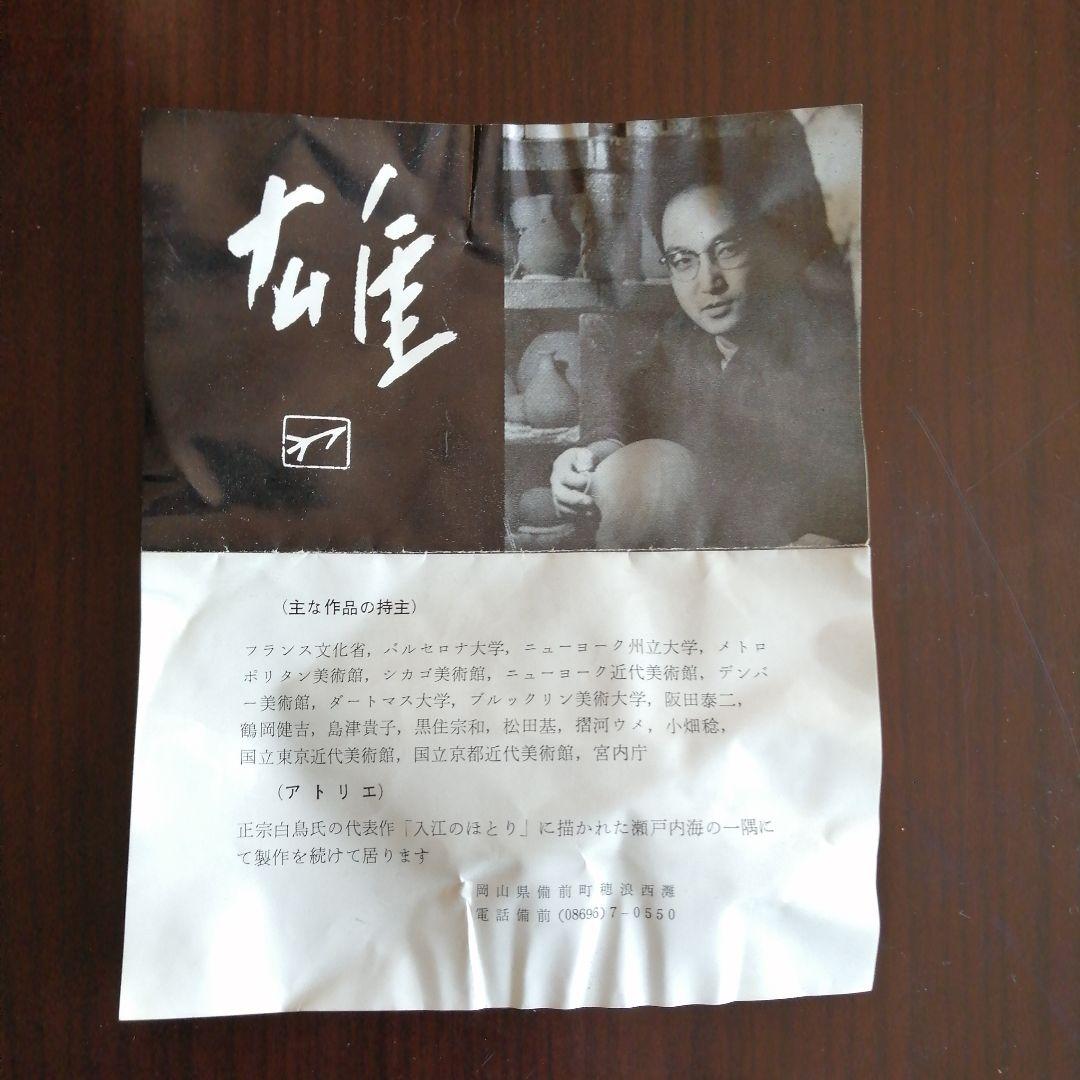 雄
(主な作品の持主)
フランス文化省, バルセロナ大学, ニューヨーク州立大学, メトロ
ポリタン美術館, シカゴ美術館, ニューヨーク近代美術館, デンバ
ー美術館, ダートマス大学, ブルックリン美術大学, 阪田泰二,
鶴岡健吉, 島津貴子, 黒住宗和, 松田基, 摺河ウメ, 小畑稔,
国立東京近代美術館, 国立京都近代美術館, 宮内庁
(アトリエ)
正宗白鳥氏の代表作「入江のほとり」に描かれた瀬戸内海の一隅に
て製作を続けて居ります
岡山県備前町穂浪西灘
電話備前(08696)7-0550